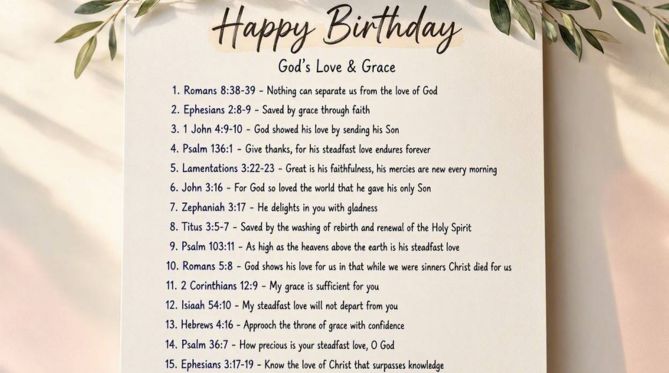 Happy Birthday
God's Love & Grace
1. Romans 8:38-39 - Nothing can separate us from the love of God
2. Ephesians 2:8-9 - Saved by grace through faith
3. 1 John 4:9-10 - God showed his love by sending his Son
4. Psalm 136:1 - Give thanks, for his steadfast love endures forever
5. Lamentations 3:22-23 - Great is his faithfulness, his mercies are new every morning
6. John 3:16 - For God so loved the world that he gave his only Son
7. Zephaniah 3:17 - He delights in you with gladness
8. Titus 3:5-7 - Saved by the washing of rebirth and renewal of the Holy Spirit
9. Psalm 103:11 - As high as the heavens above the earth is his steadfast love
10. Romans 5:8 - God shows his love for us in that while we were sinners Christ died for us
11. 2 Corinthians 12:9 - My grace is sufficient for you
12. Isiaah 54:10 - My steadfast love will not depart from you
13. Hebrews 4:16 - Approoch the throne of grace with confidence
14. Psalm 36:7 - How precious is your steadfast love, O God
15. Ephesians 3:17-19 - Know the love of Christ that surpasses knowledge